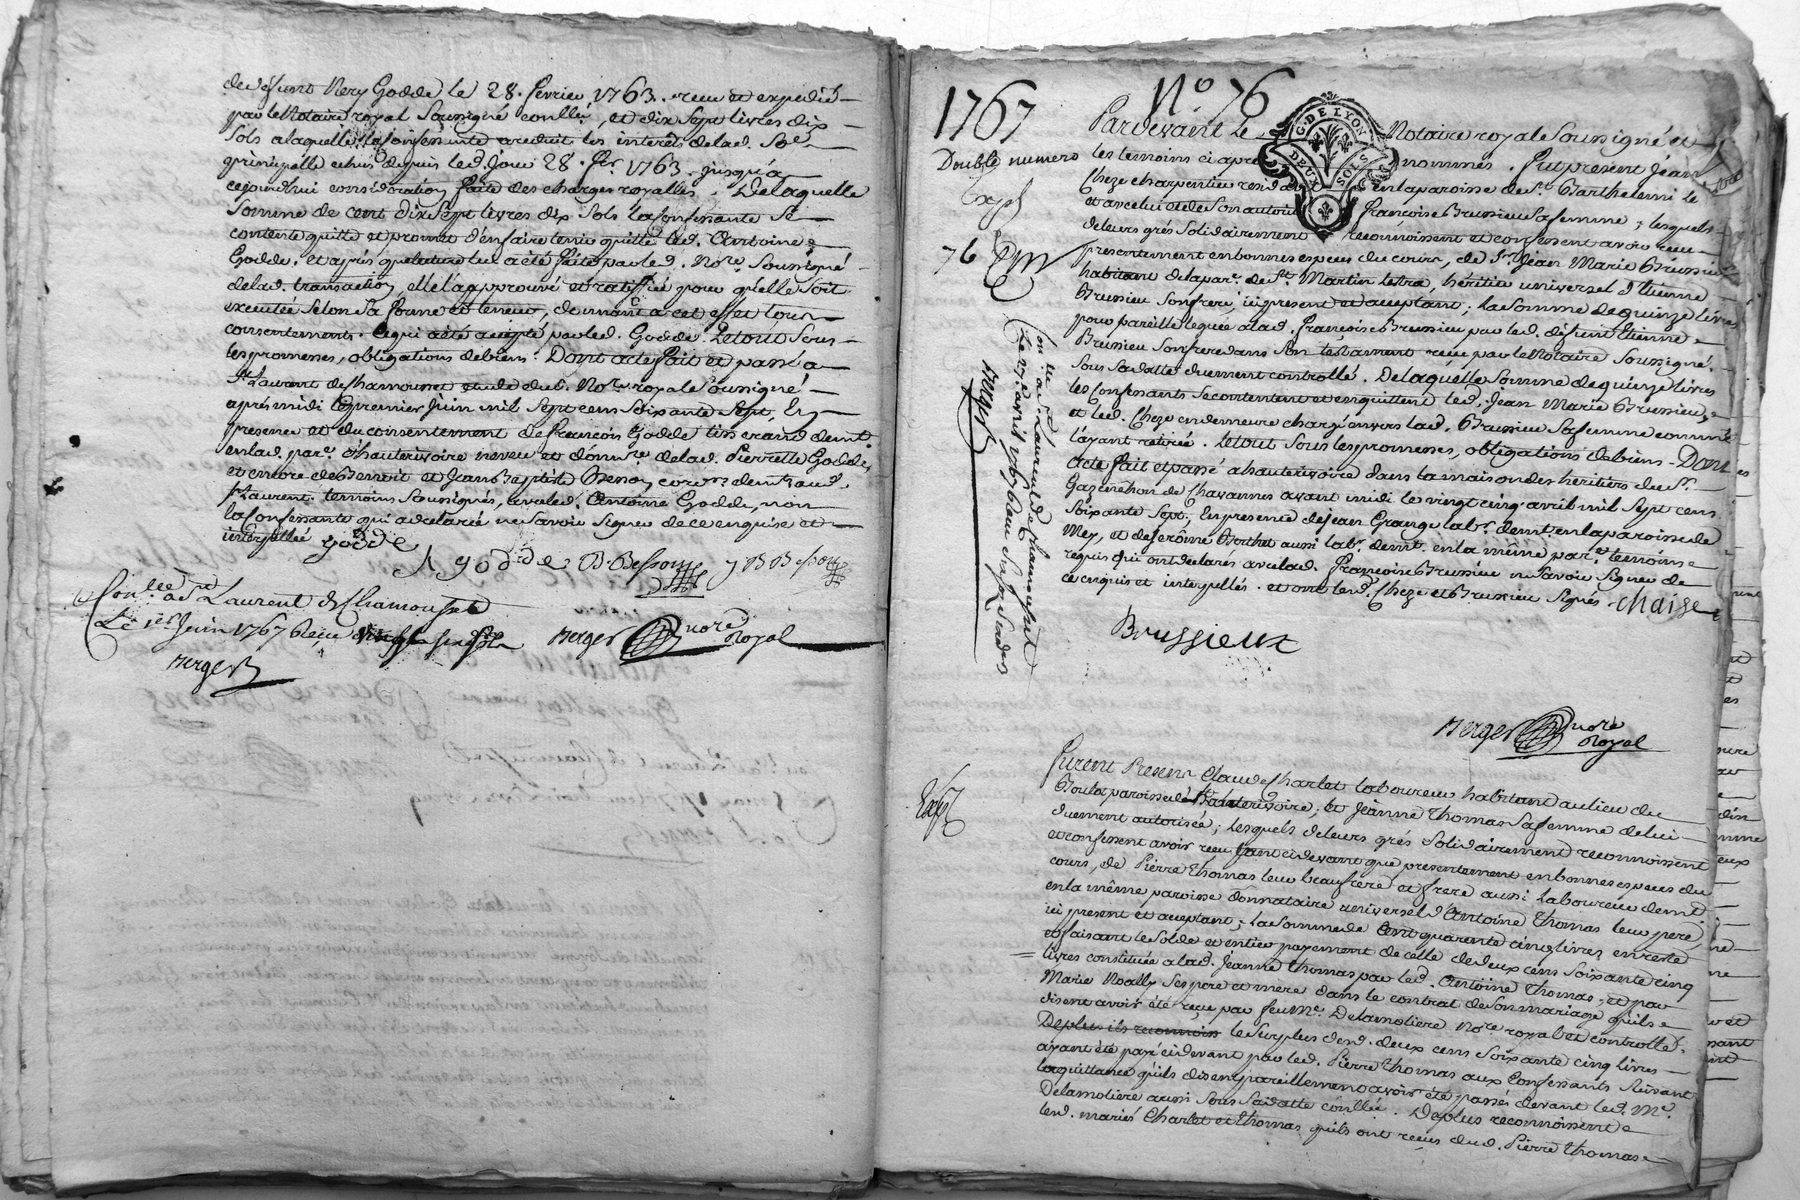 de défunt Nery Godde le 28. fevrier 1763. receu et expedié
par le Notaire royal Soussigné conllé, et dix Sept livres dix
Sols a laquelle la Confessante a reduit les interets de lad. So.e
principelle echus depuis led. jour 28. fer. 1763. jusqu'a
cejourdhui consideration faite des charges royalles. De laquelle
Somme de cent dix Sept livres dix Sols la Confessante Se
contente quitte et promet d'en faire tenir quitte led. Antoine
Godde. et après que lecture lui a été faite par led. No.re Soussigné
de lad. transaction, elle l'a approuvé et ratiffié pour qu'elle Soit
executée Selon Sa forme et teneur, donnant a cet effet tous
consentements. Ce qui a été accepté par led. Godde. Le tout Sous
les promesses, obligations de biens. Dont acte fait et passé a
St. Laurent de Chamousset etude dud. No.re royal Soussigné
après midi le premier Juin mil Sept cens Soixante Sept, En
presence et du consentement de françois Godde tisserand demt.
en lad. par.e d'hauterivoire neveu et donn.re de lad. Pierrette Godde,
et encore de Benoit et Jean Baptiste Besson cord.rs demts. aud.
St Laurent. temoins Soussignés, avec led. Antoine Godde, non
la Confessante qui a declaré ne Savoir Signer de ce enquise et
interpellée
godde A godde B. Besson J B Besson
Con.llé a St Laurent de Chamousset
Le 1er Juin 1767 Receu
Berger
Berger no.re Royal
1767
No. 76
Double numero
Exp.
76
G. DE LYON
DEUX SOLS
Pardevant le Notaire royal Soussigné et
les temoins ci après nommés. fut present Jean
Cheze charpentier resid.t en la paroisse de St. Barthelemi le
et avec lui et de Son autorité françoise Brussieu Sa femme; lesquels
de leurs grés Solidairement reconnoissent et confessent avoir receu
presentement en bonnes especes du cours, de Sr. Jean Marie Brussieu
habitant de la par.e de St. Martin Letra, héritier universel d'Etienne
Brussieu Son frere, ici present et acceptant; la Somme de quinze livres
pour pareille leguée a lad. françoise Brussieu par led. défunt Etienne
Brussieu Son frere dans Son testament receu par le Notaire Soussigné
Sous Sa datte duement controllé. De laquelle Somme de quinze livres
les Confessants Se contentent et en quittent led. Jean Marie Brussieu,
et led. Cheze en demeure chargé envers lad. Brussieu Sa femme comme
l'ayant retirée. Le tout Sous les promesses, obligations de biens. Dont
acte fait et passé a hauterivoire dans la maison des héritiers du Sr.
Gazenchon de Chavannes avant midi le vingt cinq avril mil Sept cens
Soixante Sept; En presence de jean Grange lab.r demt. en la paroisse de
Mey, et de Jerome Berthet aussi lab.r demt. en la même par.e temoins
requis qui ont declarés avec lad. françoise Brussieu ne Savoir Signer de
ce enquis et interpellés. et ont led. Cheze et Brussieu Signés. Chaise
Brussieux
Con.llé a St Laurent de Chamousset
Le 27. avril 1767 Receu
Berger
Berger no.re Royal
Exp.
Furent Presens Claude Charlet laboureur habitant au lieu du
Boulat paroisse de hauterivoire; et Jeanne Thomas Sa femme de lui
duement autorisée; lesquels de leurs grés Solidairement reconnoissent
et confessent avoir receu tant ci devant que presentement en bonnes especes du
cours, de Pierre Thomas leur beaufrere et frere aussi laboureur demt.
en la même paroisse donnataire universel d'Antoine Thomas leur pere,
ici present et acceptant; la Somme de Cent quarante cinq livres en reste
et faisant le Solde et entier payement de celle de deux cens Soixante cinq
livres constituée a lad. Jeanne Thomas par led. Antoine Thomas, et par
Marie Noally Ses pere et mere dans le contrat de Son mariage qu'ils
disent avoir été reçu par feu M.e Delamoliere No.re royal et controllé.
De plus ils reconnois le Surplus desd. deux cens Soixante cinq livres
ayant été payé ci devant par led. Pierre Thomas aux Confessants Suivant
la quittance qu'ils disent pareillement avoir été passée devant led. M.e
Delamoliere aussi Sous Sa datte conllée. De plus reconnoissent
led. mariés Charlet et Thomas qu'ils ont reçus dud. Pierre Thomas